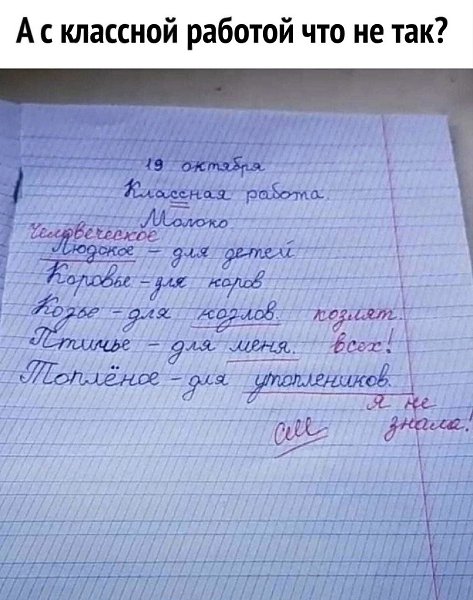 А с классной работой что не так?
19 октября
Классная работа.
Молоко
Человеческое
Людское – для детей
Коровье – для коров
Козье – для козлов. козлят
Птичье – для меня. всех!
Топлёное – для утопленников.
я не
знала!
см